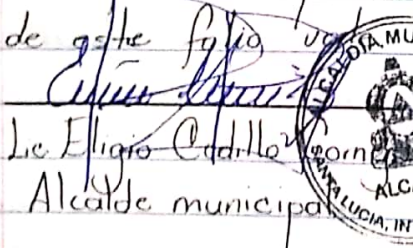 de este folio
Lic Eligio Cadillo Gomez
Alcalde municipal
ALCALDIA MU
ALC
SANTA LUCIA, IN